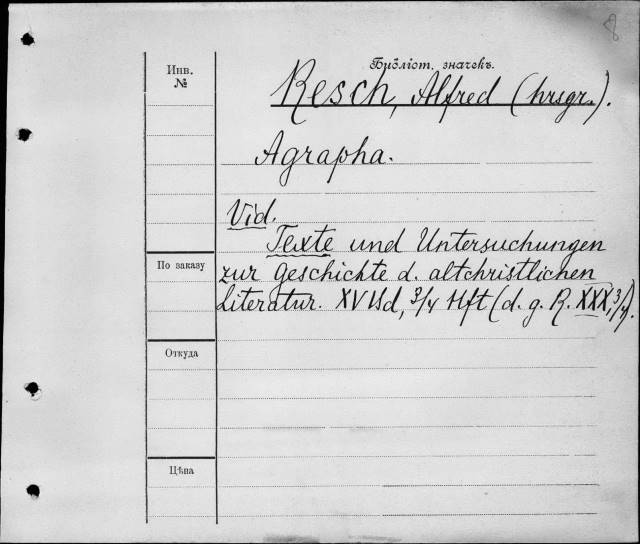 8
Библіот. значекъ.
Инв.
№
Resch, Alfred (hrsgr.).
Agrapha.
Vid.
Texte und Untersuchungen
По заказу
zur Geschichte d. altchristlichen
Literatur. XV Bd, 3/4 Hft (d. g. R. XXX, 3/4).
Откуда
Цѣна